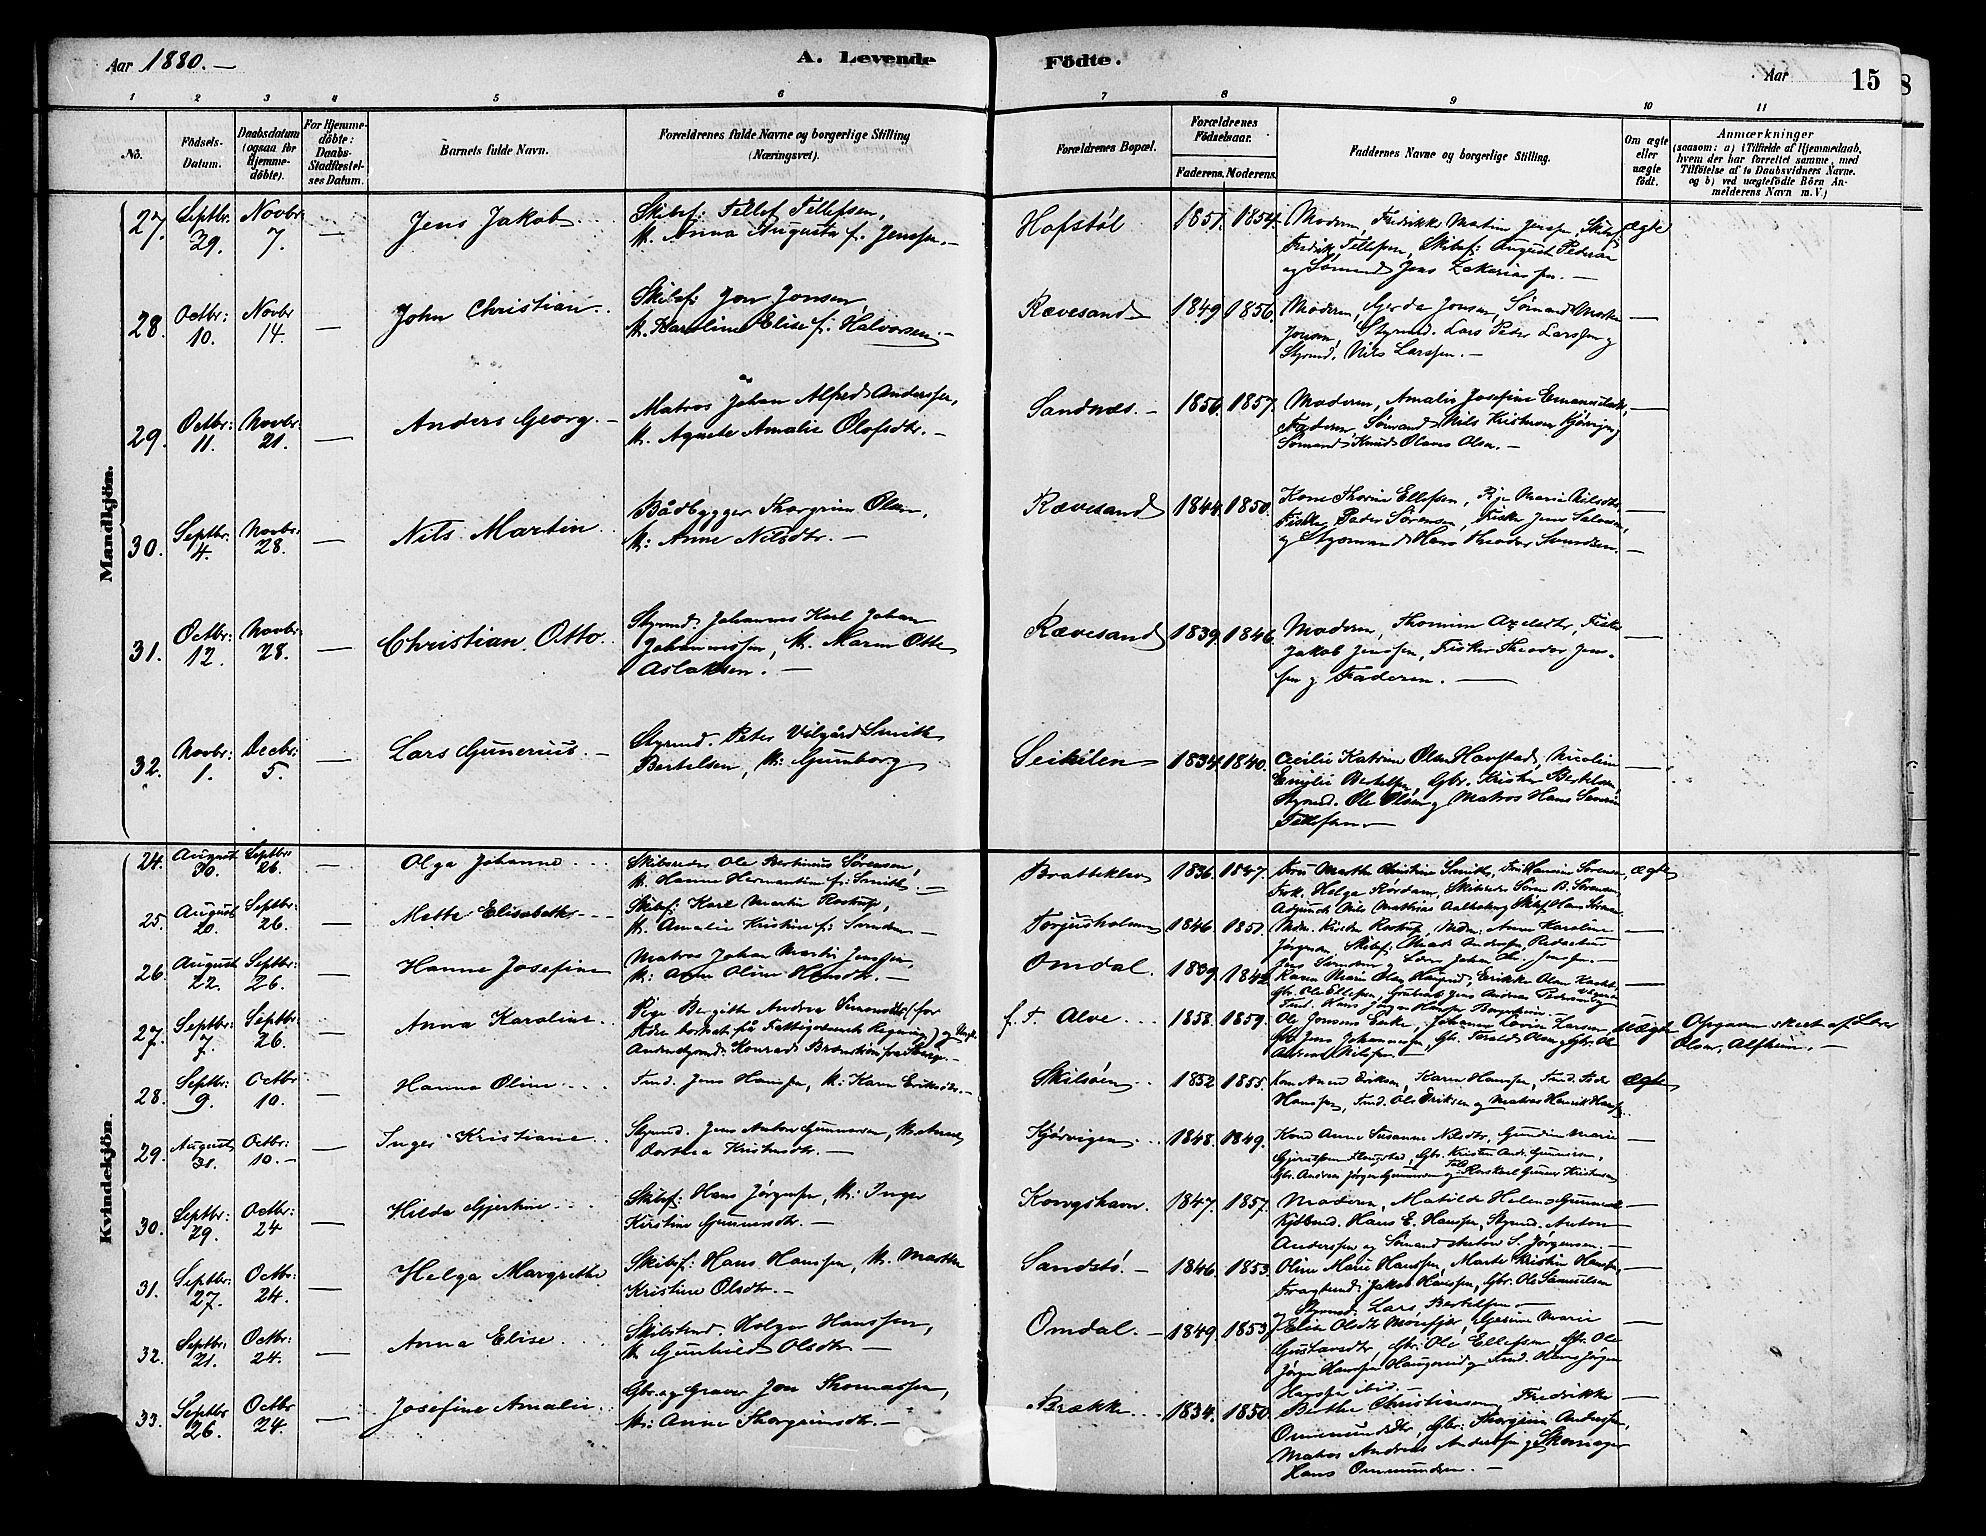 Aar 1880. —
A. Levende
Födte.
Aar
15
8
1 2 3 4 5 6 7 8 9 10 11
No.
Födsels-Datum.
Daabsdatum (ogsaa for Hjemme-döbte).
For Hjemme-döbte: Daabs-Stadfæstel-ses Datum.
Barnets fulde Navn.
Forældrenes fulde Navne og borgerlige Stilling (Næringsvei).
Forældrenes Bopæl.
Forældrenes Födselsaar.
Faderens. Moderens.
Faddernes Navne og borgerlige Stilling.
Om ægte eller uægte födt.
Anmærkninger
(saasom: a) i Tilfælde af Hjemmedaab,
hvem der har forrettet samme, med
Tilföielse af to Daabsvidners Navne.
og b) ved uægtefödte Börn An-
melderens Navn m. V.)
Mandkjön.
27. Septbr. 29. Novbr 7. — Jens Jakob
Skibsf: Tellef Tellefsen,
M. Anna Augusta f. Jenssen. —
Hafstöl 1851. 1854.
Moderen, Fredrikke Matine Jenssen, Skibsf
Fredrik Tellefsen, Skibsf: August Pedersen
og Sömand Jens Zakariassen. —
ægte
28. Octbr: 10. Novbr 14. — John Christian
Skibsf: Jon Jonsen,
M. Karoline Elise f: Halvorsen. —
Rævesand 1849 1856.
Moderen, Gerda Jonsen, Sömand
Jonsen, Styrmd. Lars Peder Larssen og
Styrmd. Nils Larssen. —
—
29. Octbr: 11. Novbr: 21. — Anders Georg. —
Matros Johan Alfred Anderssen,
M. Agnete Amalie Olofsdtr. —
Sandnæs. — 1850. 1857.
Moderen, Amalie Josefine
Faderen, Sömand Nils Kristensen Kjörvigen,
Sömand Knud Olaves Olsen. —
—
30. Septbr. 4. Novbr: 28. — Nils Martin
Bådbygger Thorgrim Olsen,
M: Anne Nilsdtr. —
Rævesand 1844. 1850.
Kone Thorine Ellefsen, Pige Marie Nilsdtr,
Fisker Peder Sörensen, Fisker Jens Salvesen,
og Styrmand Hans Theodor Svendsen. —
—
31. Octbr: 12. Novbr: 28. — Christian Otto
Styrmd: Johannes Karl Johan
Johannessen, M. Maren Otte
Aslaksen. —
Rævesand 1839. 1846.
Moderen, Thomine Axelsdtr, Fisker
Jakob Jenssen, Fisker Theodor Jens-
sen og Faderen. —
—
32. Novbr: 1. Decbr: 5. — Lars Gunerius. —
Styrmd. Peter Vilgård Smith
Bertelsen, M: Gunborg
Seikilen 1834. 1840.
Cecilie Katrine Olsen Havstad, Nicoline
Emilie Bertelsen, Gbr. Krister Bertelsen,
Styrmd. Ole Olsen og Matros Hans Severin
Tellefsen. —
—
Kvindekjön.
24. August 30. Septbr: 26. — Olga Johanne
Skibsreder Ole Bertinius Sörensen,
M. Hanne Hermantine f: Smith. —
Bratteklev 1836. 1847.
Fru Marthe Christine Smith, Fru Hansine Sörensen,
Frk. Helga Rördam, Skibsreder Sören B. Sörensen
Adjunct Nils Mathias Aalholm og Skibsf. Hans Sörensen
ægte
25. August 20. Septbr: 26. — Mette Elisabeth
Skibsf: Karl Martin Rostrup,
M. Amalie Kristine f: Svendsen —
Torjusholmen 1846 1851.
Mdm. Kirsten Rostrup, Mdm. Anne Karoline
Jörgensen, Skibsf: Mads Andersen, Redacteur
Jens Svendsen og Johan Jensen. —
—
26. August 22. Septbr: 26. — Hanne Josefine
Matros Johan Martin Jenssen,
M: Anne Oline Hansdtr. —
Omdal. 1839. 1842.
Karen Marie Olsen Haugerud, Erikke Olsen
Gbr. Ole Ellefsen, Jens Andreas Pedersen
—
27. Septbr: 7. Septbr: 26. — Anna Karoline
Pige Birgitte Andrea Simonsdtr (for
Tiden bortsat på Fattigvæsenets Regning) og Ungk.
Konrad
f. T. Alve 1858. 1859.
Ole Jonsens Enke, Johanne Lovise Larsen
Gbr. Jens Johannessen, Gbr. Terald Olsen og Gbr. Ole
Andreas Nilssen. —
uægte
Opgaven skeet af Lærer
Olsen, Alfheim. —
28. Septbr: 9. Octbr: 10. — Hanna Oline
Tmd. Jens Hanssen, M: Karen Eriksdtr. —
Skilsöen 1852 1855.
Kone Anne Eriksen, Karen Hanssen, Tmd. Peder
Hanssen, Tmd. Ole Eriksen og Matros Henrik Hanssen.
ægte
29. August 31. Octbr: 10. — Inger Kristiane
Styrmd. Jens Anton Gunnersen, M. Anne
Dorthea Kristensdtr. —
Kjörvigen 1848. 1849.
Kone Anne Susanne Nilsdtr, Gundine Marie
Gjerulfsen Flangstad, Gbr. Kristen Andr. Gunnersen,
Gbr. Andreas Jörgen Gunnersen og Gunner Kristensen
—
30. Septbr: 29. Octbr: 24 — Hilda Gjertine
Skibsf: Hans Jörgensen, M: Inger
Kirstine Gunnersdtr. —
Kongshavn. 1847. 1857.
Moderen, Matilde Helene
Kjöbmd. Hans E. Hanssen, Styrmd. Anton
Anderssen og Sömand Anton S. Jörgensen. —
—
31. Septbr: 27. Octbr: 24. — Helga Margrethe
Skibsf: Hans Hanssen, M. Marthe
Kristine Olsdtr. —
Sandstö. — 1846. 1853.
Oline Marie Hanssen, Marte Kristine Hanssen,
Fragtemd: Jakob Hanssen, Gbr. Ole Samuelsen
og Styrmd. Lars Bertelsen. —
—
32. Septbr: 21. Octbr: 24. — Anna Elise
Skibstmd. Holger Hanssen,
M. Gunhild Olsdtr. —
Omdal. — 1849. 1853.
Elise Olsdtr Monefjer, Gjerine Marie
Gustavsdtr, Gbr. Ole Ellefsen, Gbr. Ole
Jörgen Hanssen Haugerud og Tmd. Hans Jörgen
Hanssen ibid. —
—
33. Septbr 26. Octbr 24. — Josefine Amalie
Gbr. og Graver Jon Thomassen,
M: Anne Thorgrimsdtr. —
Brække 1834. 1850.
Berthe Christiansen, Fredrikke
Ommundsdtr, Gbr: Thorgrim Anderssen,
Matros Andreas Anderssen og Skomager
Hans Ommundsen. —
—